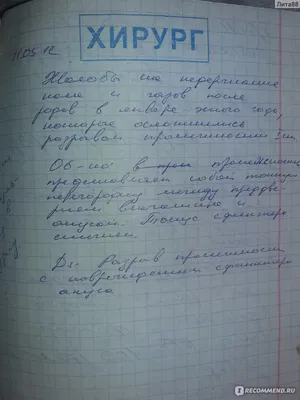 Лита88
11.05.12
ХИРУРГ
Жалобы на недержание
кала и газов после
родов в январе этого года,
которые осложнились
разрывом промежности I ст.
Об-но в промежности
представляет собой тонкую
перегородку между преддве-
рием влагалища и
анусом. Тонус сфинктера
снижен
Ds: Разрыв промежности
с повреждением сфинктера
ануса
RECOMMEND.RU